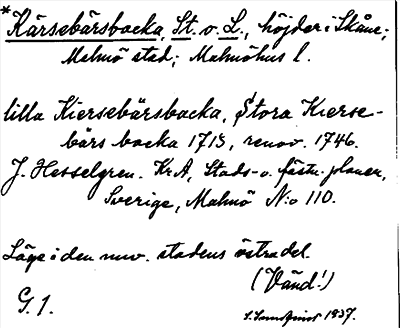 *Kärsebärsbacka, St. o. L., höjder i Skåne;
Malmö stad; Malmöhus l.
lilla Kiersebärsbacka, Stora Kierse-
bärs backa 1713, renov. 1746.
J. Hesselgren. KrA, Stads- o. fästn. planer,
Sverige, Malmö N:o 110.
Läge i den nuv. stadens östra del.
(Vänd!)
G. 1.
1937.